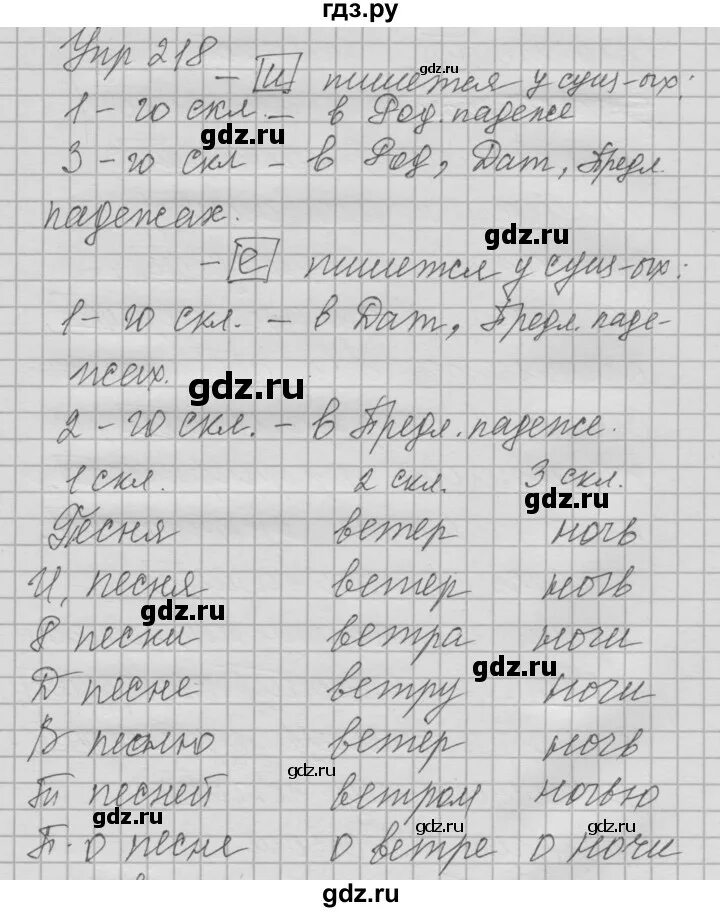 гдз.ру
Упр 218
- и пишется у сущ-ых:
1-го скл. - в Род. падеже
3-го скл - в Род, Дат, Предл.
падежах.
- е пишется у сущ-ых:
1-го скл. - в Дат, Предл. паде-
жах.
2-го скл. - в Предл. падеже.
1 скл. 2 скл. 3 скл.
Песня ветер ночь
И, песня ветер ночь
Р песни ветра ночи
Д песне ветру ночи
В песню ветер ночь
Тп песней ветром ночью
П. о песне о ветре о ночи
gdz.ru
gdz.ru
gdz.ru
gdz.ru
gdz.ru
gdz.ru
gdz.ru
gdz.ru
gdz.ru
gdz.ru
gdz.ru
gdz.ru